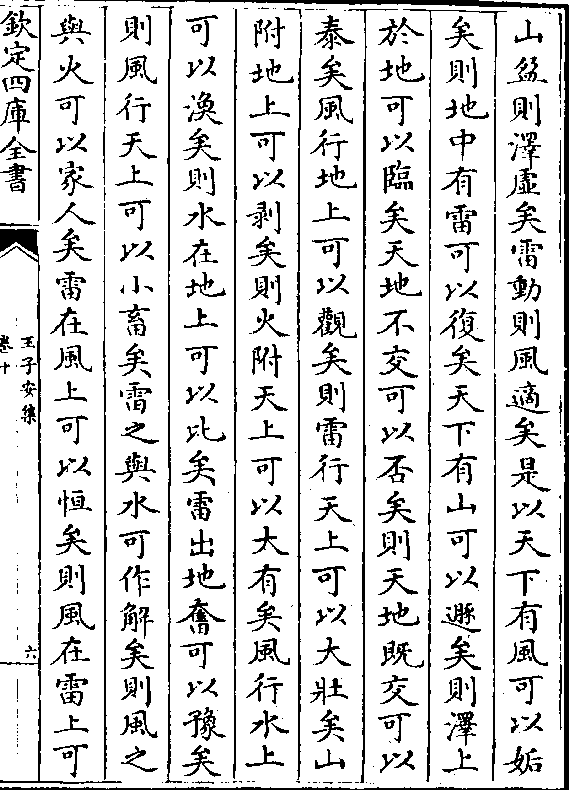 山盆則澤虛矣雷動則風適矣是以天下有風可以姤
矣則地中有雷可以復矣天下有山可以遯矣則澤上
於地可以臨矣天地不交可以否矣則天地既交可以
泰矣風行地上可以觀矣則雷行天上可以大壯矣山
附地上可以剥矣則火附天上可以大有矣風行水上
可以渙矣則水在地上可以比矣雷出地奮可以豫矣
則風行天上可以小畜矣雷之與水可作解矣則風之
與火可以家人矣雷在風上可以恒矣則風在雷上可
欽定四庫全書
王子安集
卷十
六